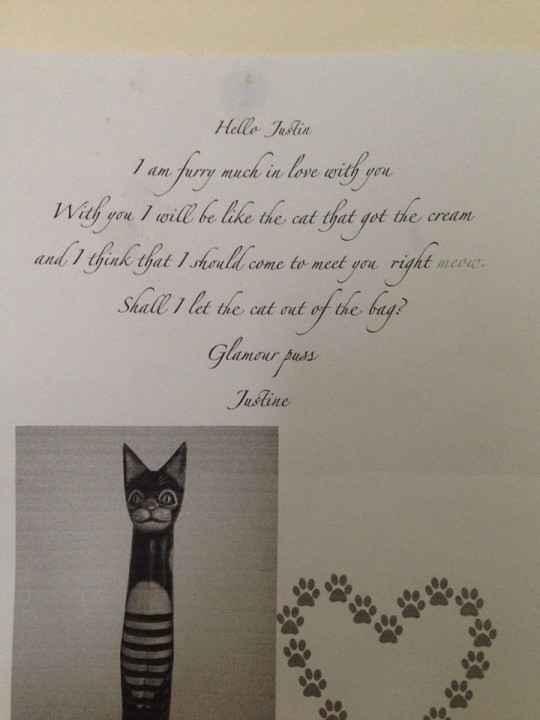 Hello Justin
I am furry much in love with you
With you I will be like the cat that got the cream
and I think that I should come to meet you right meow.
Shall I let the cat out of the bag?
Glamour puss
Justine